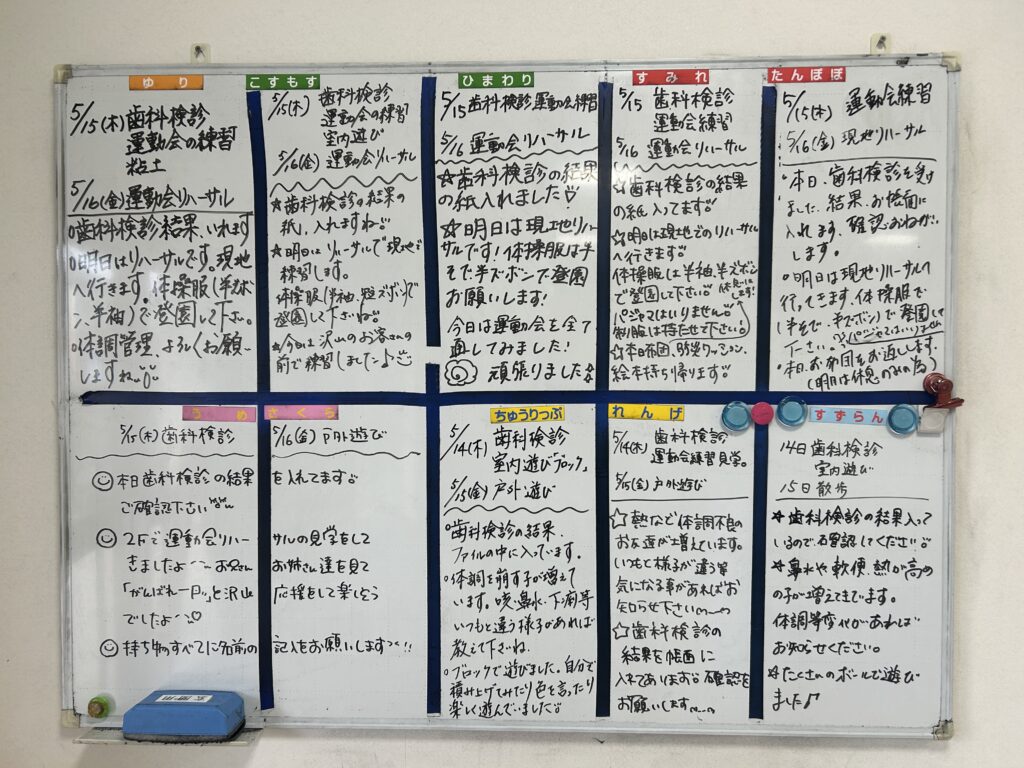 ゆり
5/15(木)歯科検診
運動会の練習
粘土
5/16(金)運動会リハーサル
○歯科検診結果、いれます
○明日はリハーサルです。現地
へ行きます。体操服(半ズボ
ン、半袖)で登園して下さい。
○体調管理、よろしくお願い
しますね
こすもす
5/15(木) 歯科検診
運動会の練習
室内遊び
5/16(金) 運動会リハーサル
☆歯科検診の結果の
紙、入れますね
☆明日はリハーサルで現地で
練習します。
体操服(半袖、短ズボン)で
登園して下さいね
☆今日は沢山のお客さんの
前で練習しました♪
ひまわり
5/15 歯科検診 運動会練習
5/16 運動会リハーサル
☆歯科検診の結果
の紙入れました
☆明日は現地リハー
サルです!体操服は半
そで半ズボンで登園
お願いします!
今日は運動会を全て
通してみました!
頑張りました☆
すみれ
5/15 歯科検診
運動会練習
5/16 運動会リハーサル
☆歯科検診の結果
の紙入ってます
☆明日は現地でのリハーサル
へ行きます
体操服は半袖、半ズボン
で登園して下さい
パジャマはいりません
休息にします!
制服は持たせて下さい
☆本日布団、防災クッション、
絵本持ち帰ります
たんぽぽ
5/15(木) 運動会練習
5/16(金) 現地リハーサル
・本日、歯科検診を受け
ました。結果、お帳面に
入れます、確認おねがい
します。
・明日は現地リハーサルへ
行ってきます、体操服で
(半そで、半ズボン)で登園して
下さい。パジャマはいりません
・本日、お布団をお返しします。
(明日は休息のみの為)
うめ さくら
5/15(木)歯科検診 5/16(金)戸外遊び
本日歯科検診の結果を入れてます
ご確認下さい
2Fで運動会リハーサルの見学をして
きましたよ〜 お兄さんお姉さん達を見て
「がんばれー!!」と沢山応援をして楽しそう
でしたよ〜♡
持ち物すべてに名前の記入をお願いします!!
ちゅうりっぷ
5/14(木) 歯科検診
室内遊び「ブロック」
5/15(金) 戸外遊び
・歯科検診の結果、
ファイルの中に入っています。
・体調を崩す子が増えて
います。咳・鼻水・下痢等
いつもと違う様子があれば
教えて下さいね。
・ブロックで遊びました。自分で
積み上げてみたり色を言ったり
楽しく遊んでいました
れんげ
5/14(木) 歯科検診
運動会練習見学。
5/15(金) 戸外遊び
☆熱など体調不良の
お友達が増えています。
いつもと様子が違う等
気になる事があればお
知らせ下さい
☆歯科検診の
結果を帳面に
入れてあります 確認を
お願いします
すずらん
14日 歯科検診
室内遊び
15日 散歩
☆歯科検診の結果入って
いるので確認してください
☆鼻水や軟便、熱が高め
の子が増えてきてます。
体調等変化があれば
お知らせください。
☆たくさんのボールで遊び
ました♪